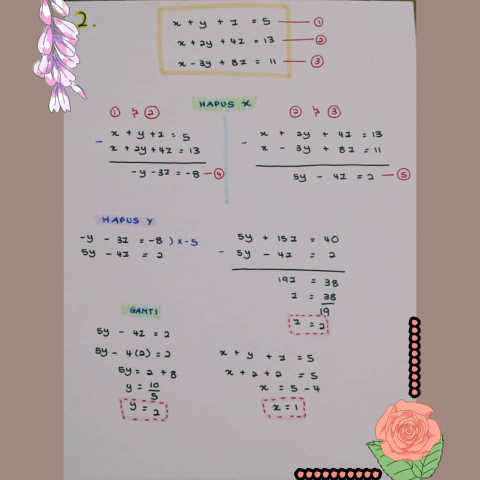 2.
x + y + z = 5 ①
x + 2y + 4z = 13 ②
x - 3y + 8z = 11 ③
HAPUS X
① > ②
- x + y + z = 5
x + 2y + 4z = 13
-y - 3z = -8 ④
② > ③
- x + 2y + 4z = 13
x - 3y + 8z = 11
5y - 4z = 2 ⑤
HAPUS Y
-y - 3z = -8 ) x -5
5y - 4z = 2
- 5y + 15z = 40
5y - 4z = 2
19z = 38
z = 38
19
z = 2
GANTI
5y - 4z = 2
5y - 4(2) = 2
5y = 2 + 8
y = 10
5
y = 2
x + y + z = 5
x + 2 + 2 = 5
x = 5 - 4
x = 1